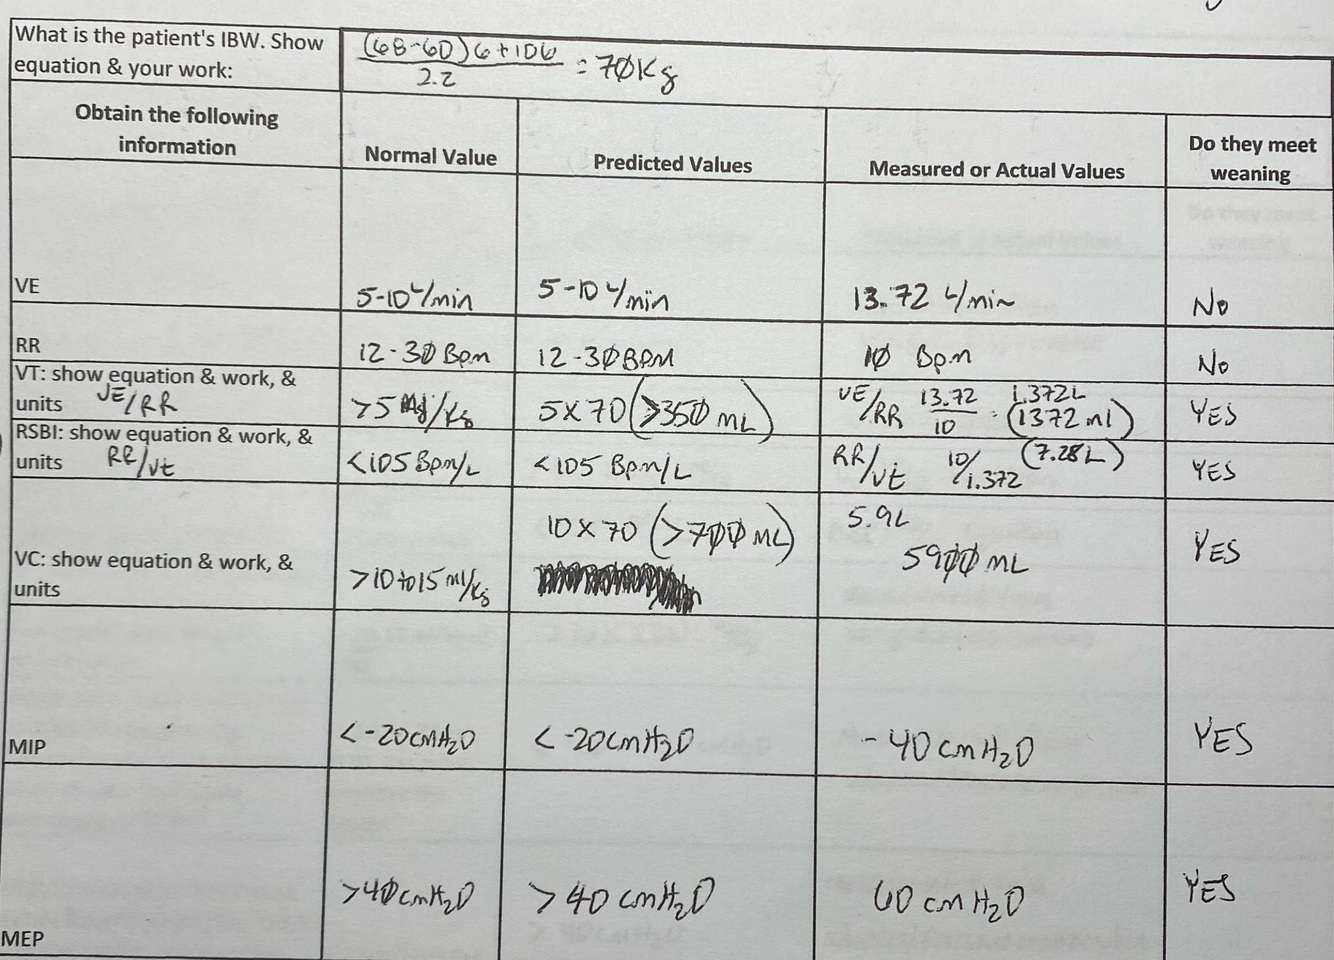 What is the patient's IBW. Show
equation & your work:
(68-60)6+106
2.2
= 70Kg
Obtain the following
information
Normal Value
Predicted Values
Measured or Actual Values
Do they meet
weaning
VE
5-10 L/min
5-10 L/min
13.72 L/min
No
RR
12-30 Bpm
12-30 BPM
10 Bpm
No
VT: show equation & work, &
units VE/RR
>5 /Kg
5 X 70 (>350 mL)
VE/RR 13.72/10 = 1.372L
(1372 ml)
YES
RSBI: show equation & work, &
units RR/Vt
<105 Bpm/L
<105 Bpm/L
RR/Vt 10/1.372 (7.28L)
YES
VC: show equation & work, &
units
>10 to 15 ml/Kg
10 X 70 (>700 mL)
5.9L
5900 mL
YES
MIP
<-20cmH2O
<-20cmH2O
-40 cmH2O
YES
MEP
>40cmH2O
>40 cmH2O
60 cmH2O
YES